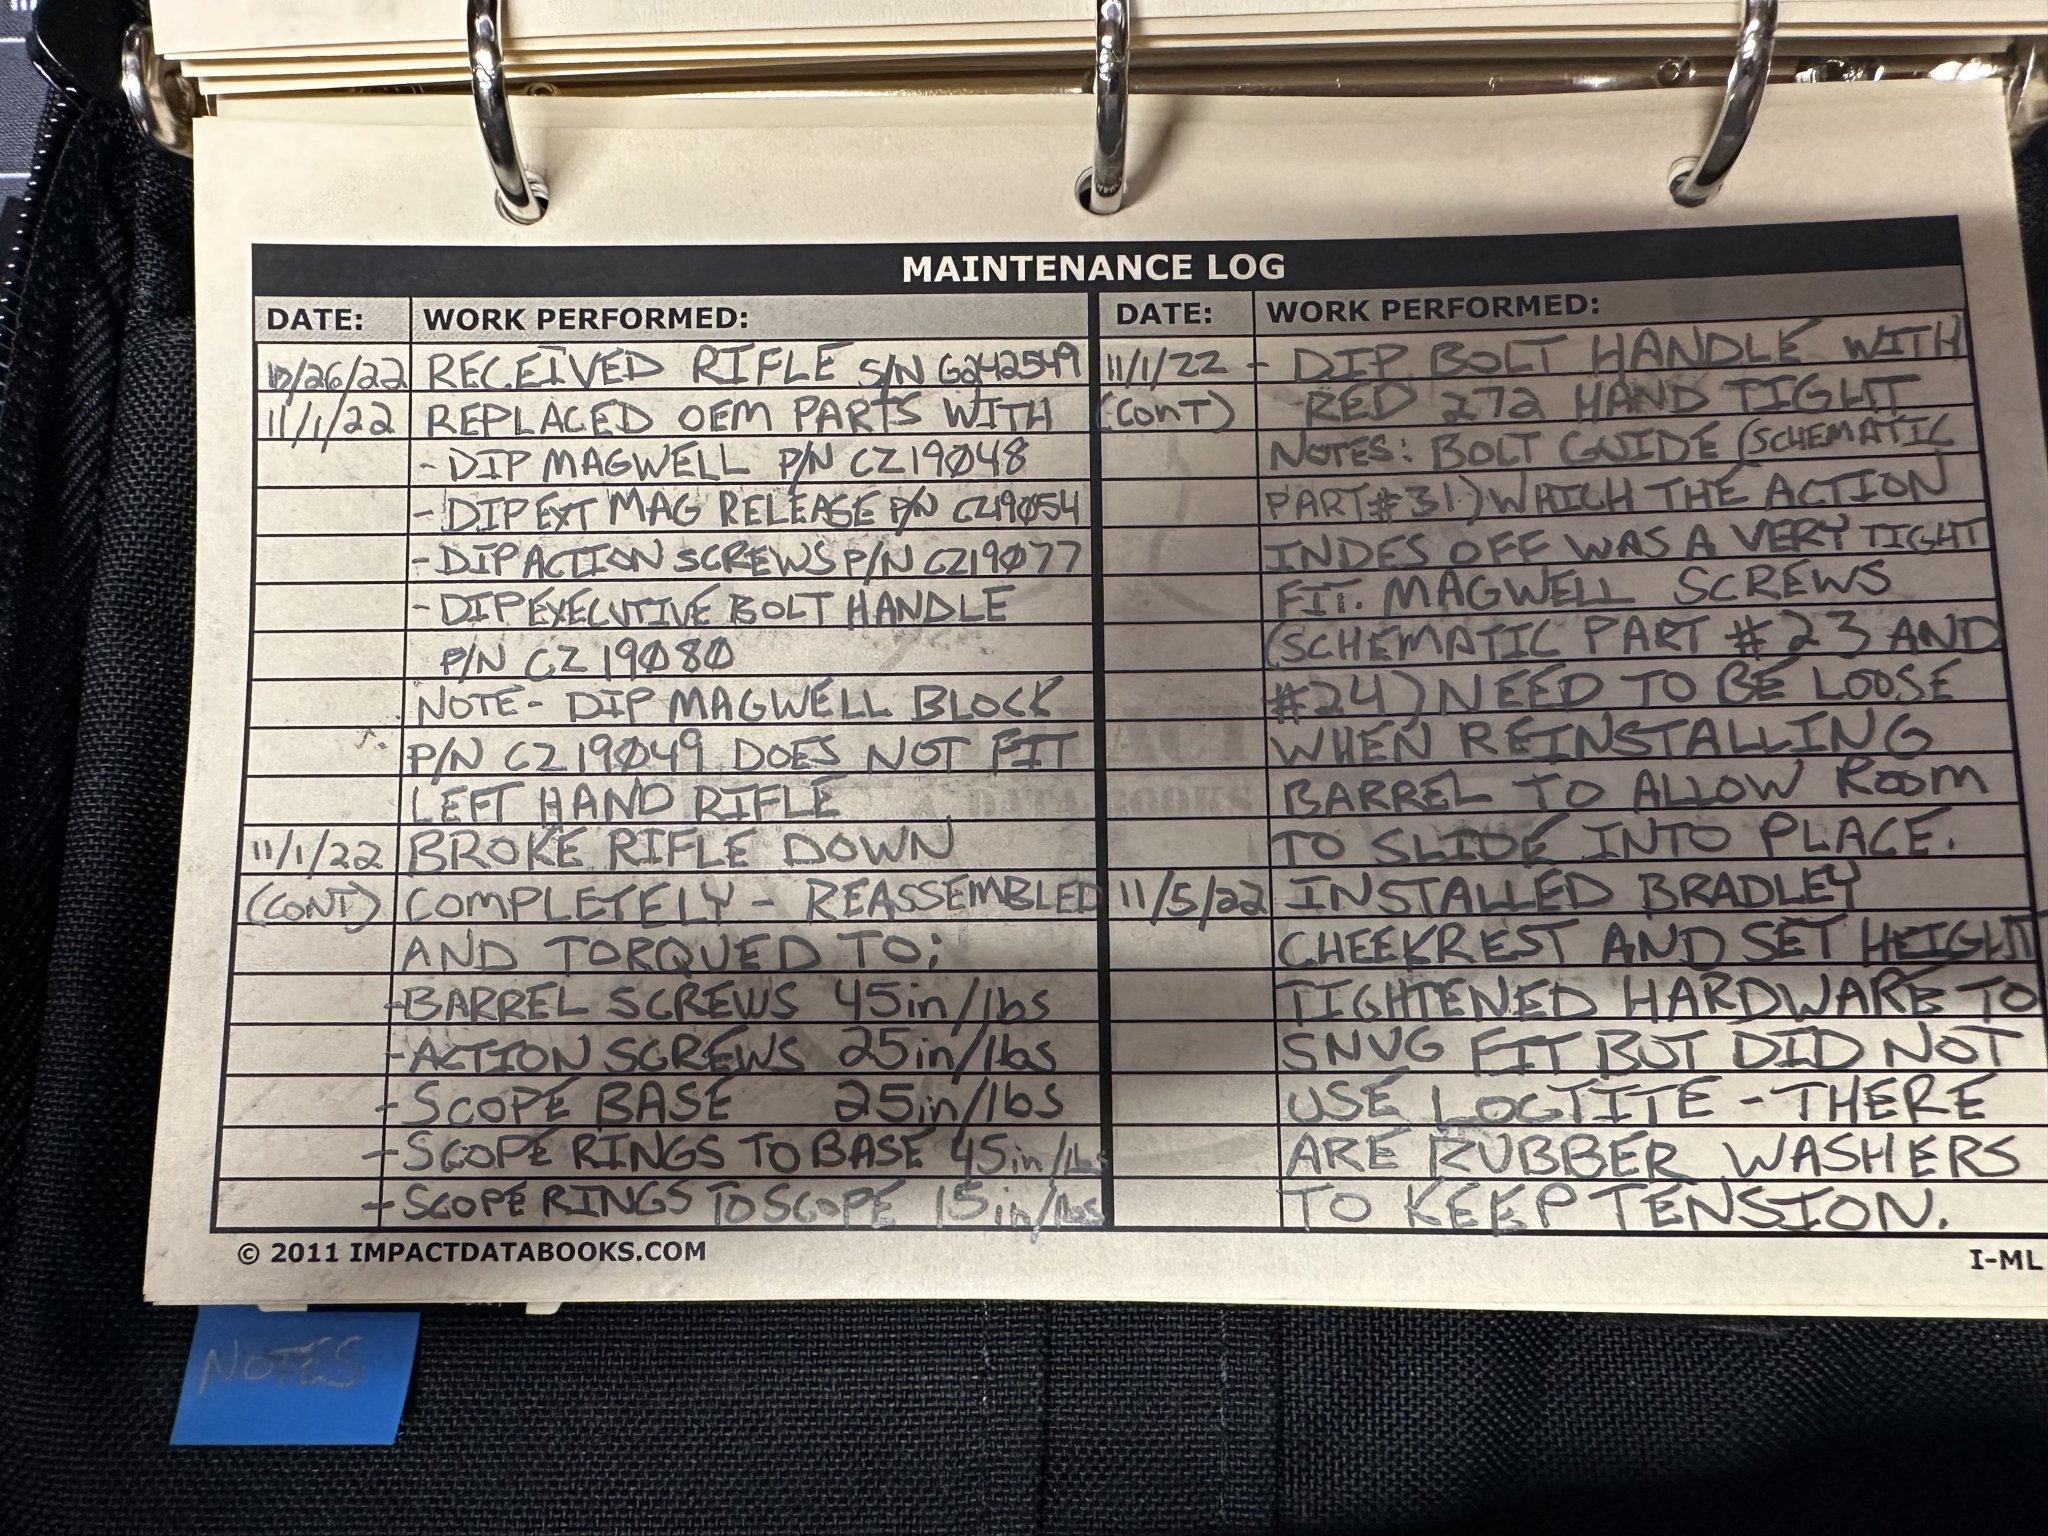 MAINTENANCE LOG
DATE: WORK PERFORMED:
10/26/22 RECEIVED RIFLE S/N G242549
11/1/22 REPLACED OEM PARTS WITH
- DIP MAGWELL P/N CZ19048
- DIP EXT MAG RELEASE P/N CZ19054
- DIP ACTION SCREWS P/N CZ19077
- DIP EXECUTIVE BOLT HANDLE
P/N CZ19080
NOTE - DIP MAGWELL BLOCK
P/N CZ19049 DOES NOT FIT
LEFT HAND RIFLE
11/1/22 BROKE RIFLE DOWN
(CONT) COMPLETELY - REASSEMBLED
AND TORQUED TO;
- BARREL SCREWS 45in/lbs
- ACTION SCREWS 25in/lbs
- SCOPE BASE 25in/lbs
- SCOPE RINGS TO BASE 45in/lbs
- SCOPE RINGS TO SCOPE 15in/lbs
DATE: WORK PERFORMED:
11/1/22 - DIP BOLT HANDLE WITH
(CONT) RED 272 HAND TIGHT
NOTES: BOLT GUIDE (SCHEMATIC
PART #31) WHICH THE ACTION
INDES OFF WAS A VERY TIGHT
FIT. MAGWELL SCREWS
(SCHEMATIC PART #23 AND
#24) NEED TO BE LOOSE
WHEN REINSTALLING
BARREL TO ALLOW ROOM
TO SLIDE INTO PLACE.
11/5/22 INSTALLED BRADLEY
CHEEKREST AND SET HEIGHT
TIGHTENED HARDWARE TO
SNUG FIT BUT DID NOT
USE LOCTITE - THERE
ARE RUBBER WASHERS
TO KEEP TENSION.
© 2011 IMPACTDATABOOKS.COM
I-ML
NOTES